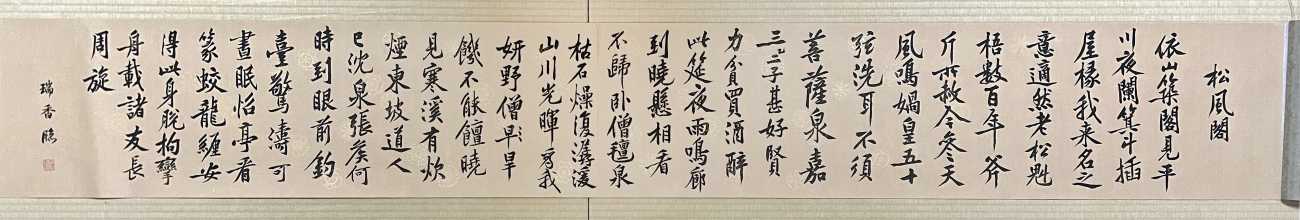 松風閣
依山築閣見平
川夜闌箕斗插
屋椽我来名之
意適然老松魁
梧數百年斧
斤所赦今參天
風鳴媧皇五十
弦洗耳不須
菩薩泉嘉
三二子甚好賢
力貧買酒醉
此筵夜雨鳴廊
到曉懸相看
不歸卧僧氊泉
枯石燥復潺湲
山川光暉為我
妍野僧早旱
饑不能饘曉
見寒溪有炊
煙東坡道人
已沈泉張侯何
時到眼前釣
臺驚濤可
晝眠怡亭看
篆蛟龍纏安
得此身脫拘攣
舟載諸友長
周旋
瑞香臨